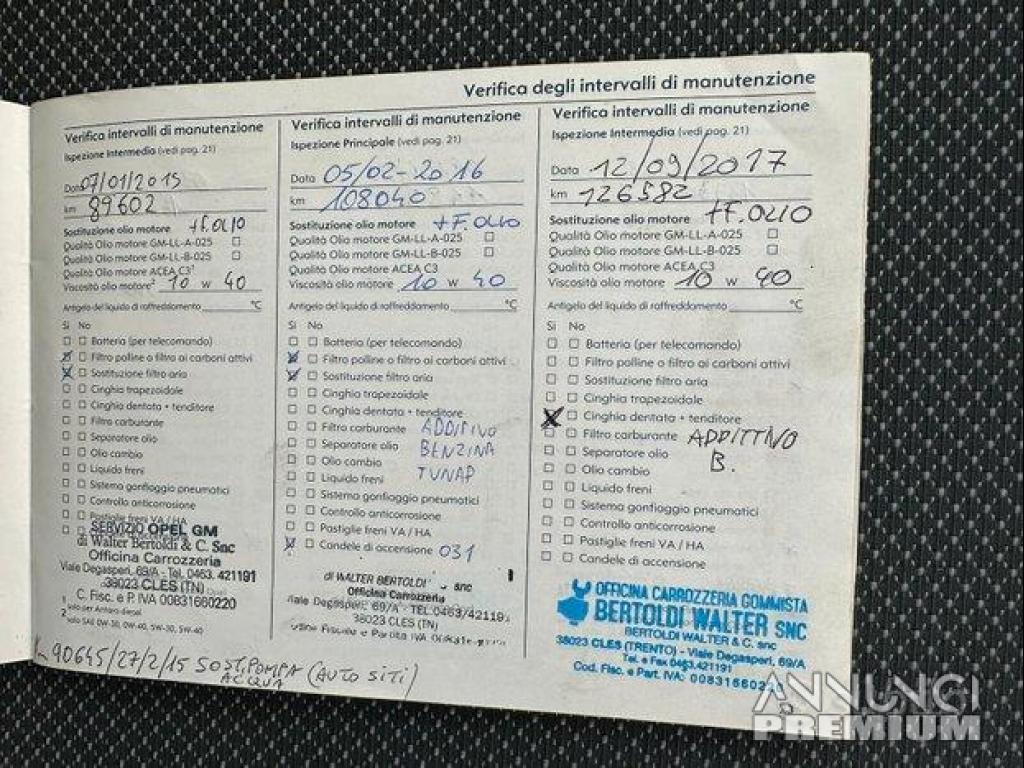 Verifica degli intervalli di manutenzione
Verifica intervalli di manutenzione
Ispezione Intermedia (vedi pag. 21)
Data 07/01/2015
km 89602
Sostituzione olio motore +F.OLIO
Qualità Olio motore GM-LL-A-025 □
Qualità Olio motore GM-LL-B-025 □
Qualità Olio motore ACEA C3¹
Viscosità olio motore² 10 w 40
Antigelo del liquido di raffreddamento °C
Si No
Batteria (per telecomando)
Filtro polline o filtro ai carboni attivi
Sostituzione filtro aria
Cinghia trapezoidale
Cinghia dentata + tenditore
Filtro carburante
Separatore olio
Olio cambio
Liquido freni
Sistema gonfiaggio pneumatici
Controllo anticorrosione
Pastiglie freni VA / HA
SERVIZIO OPEL GM
di Walter Bertoldi & C. Snc
Officina Carrozzeria
Viale Degasperi, 69/A - Tel. 0463. 421191
38023 CLES (TN)
C. Fisc. e P. IVA 00831660220
1 solo per Antara diesel
2 solo SAE 0W-30, 0W-40, 5W-30, 5W-40
Km 90645/27/2/15 SOST.POMPA (AUTO SITI)
ACQUA
Verifica intervalli di manutenzione
Ispezione Principale (vedi pag. 21)
Data 05/02-2016
km 108040
Sostituzione olio motore +F.OLIO
Qualità Olio motore GM-LL-A-025 □
Qualità Olio motore GM-LL-B-025 □
Qualità Olio motore ACEA C3
Viscosità olio motore 10 w 40
Antigelo del liquido di raffreddamento °C
Si No
Batteria (per telecomando)
Filtro polline o filtro ai carboni attivi
Sostituzione filtro aria
Cinghia trapezoidale
Cinghia dentata + tenditore
Filtro carburante ADDITIVO
Separatore olio BENZINA
Olio cambio
Liquido freni TUNAP
Sistema gonfiaggio pneumatici
Controllo anticorrosione
Pastiglie freni VA / HA
Candele di accensione 031
di WALTER BERTOLDI snc
Officina Carrozzeria
Viale Degasperi, 69/A - TEL. 0463/421191
38023 CLES (TN)
Verifica intervalli di manutenzione
Ispezione Intermedia (vedi pag. 21)
Data 12/09/2017
km 126582
Sostituzione olio motore +F.OLIO
Qualità Olio motore GM-LL-A-025 □
Qualità Olio motore GM-LL-B-025 □
Qualità Olio motore ACEA C3
Viscosità olio motore 10 w 40
Antigelo del liquido di raffreddamento °C
Si No
Batteria (per telecomando)
Filtro polline o filtro ai carboni attivi
Sostituzione filtro aria
Cinghia trapezoidale
Cinghia dentata + tenditore
Filtro carburante ADDITTIVO
Separatore olio B.
Olio cambio
Liquido freni
Sistema gonfiaggio pneumatici
Controllo anticorrosione
Pastiglie freni VA / HA
Candele di accensione
OFFICINA CARROZZERIA GOMMISTA
BERTOLDI WALTER SNC
BERTOLDI WALTER & C. snc
38023 CLES (TRENTO) - Viale Degasperi, 69/A
Tel. e Fax 0463.421191
Cod. Fisc. e Part. IVA: 00831660220
ANNUNCI
PREMIUM